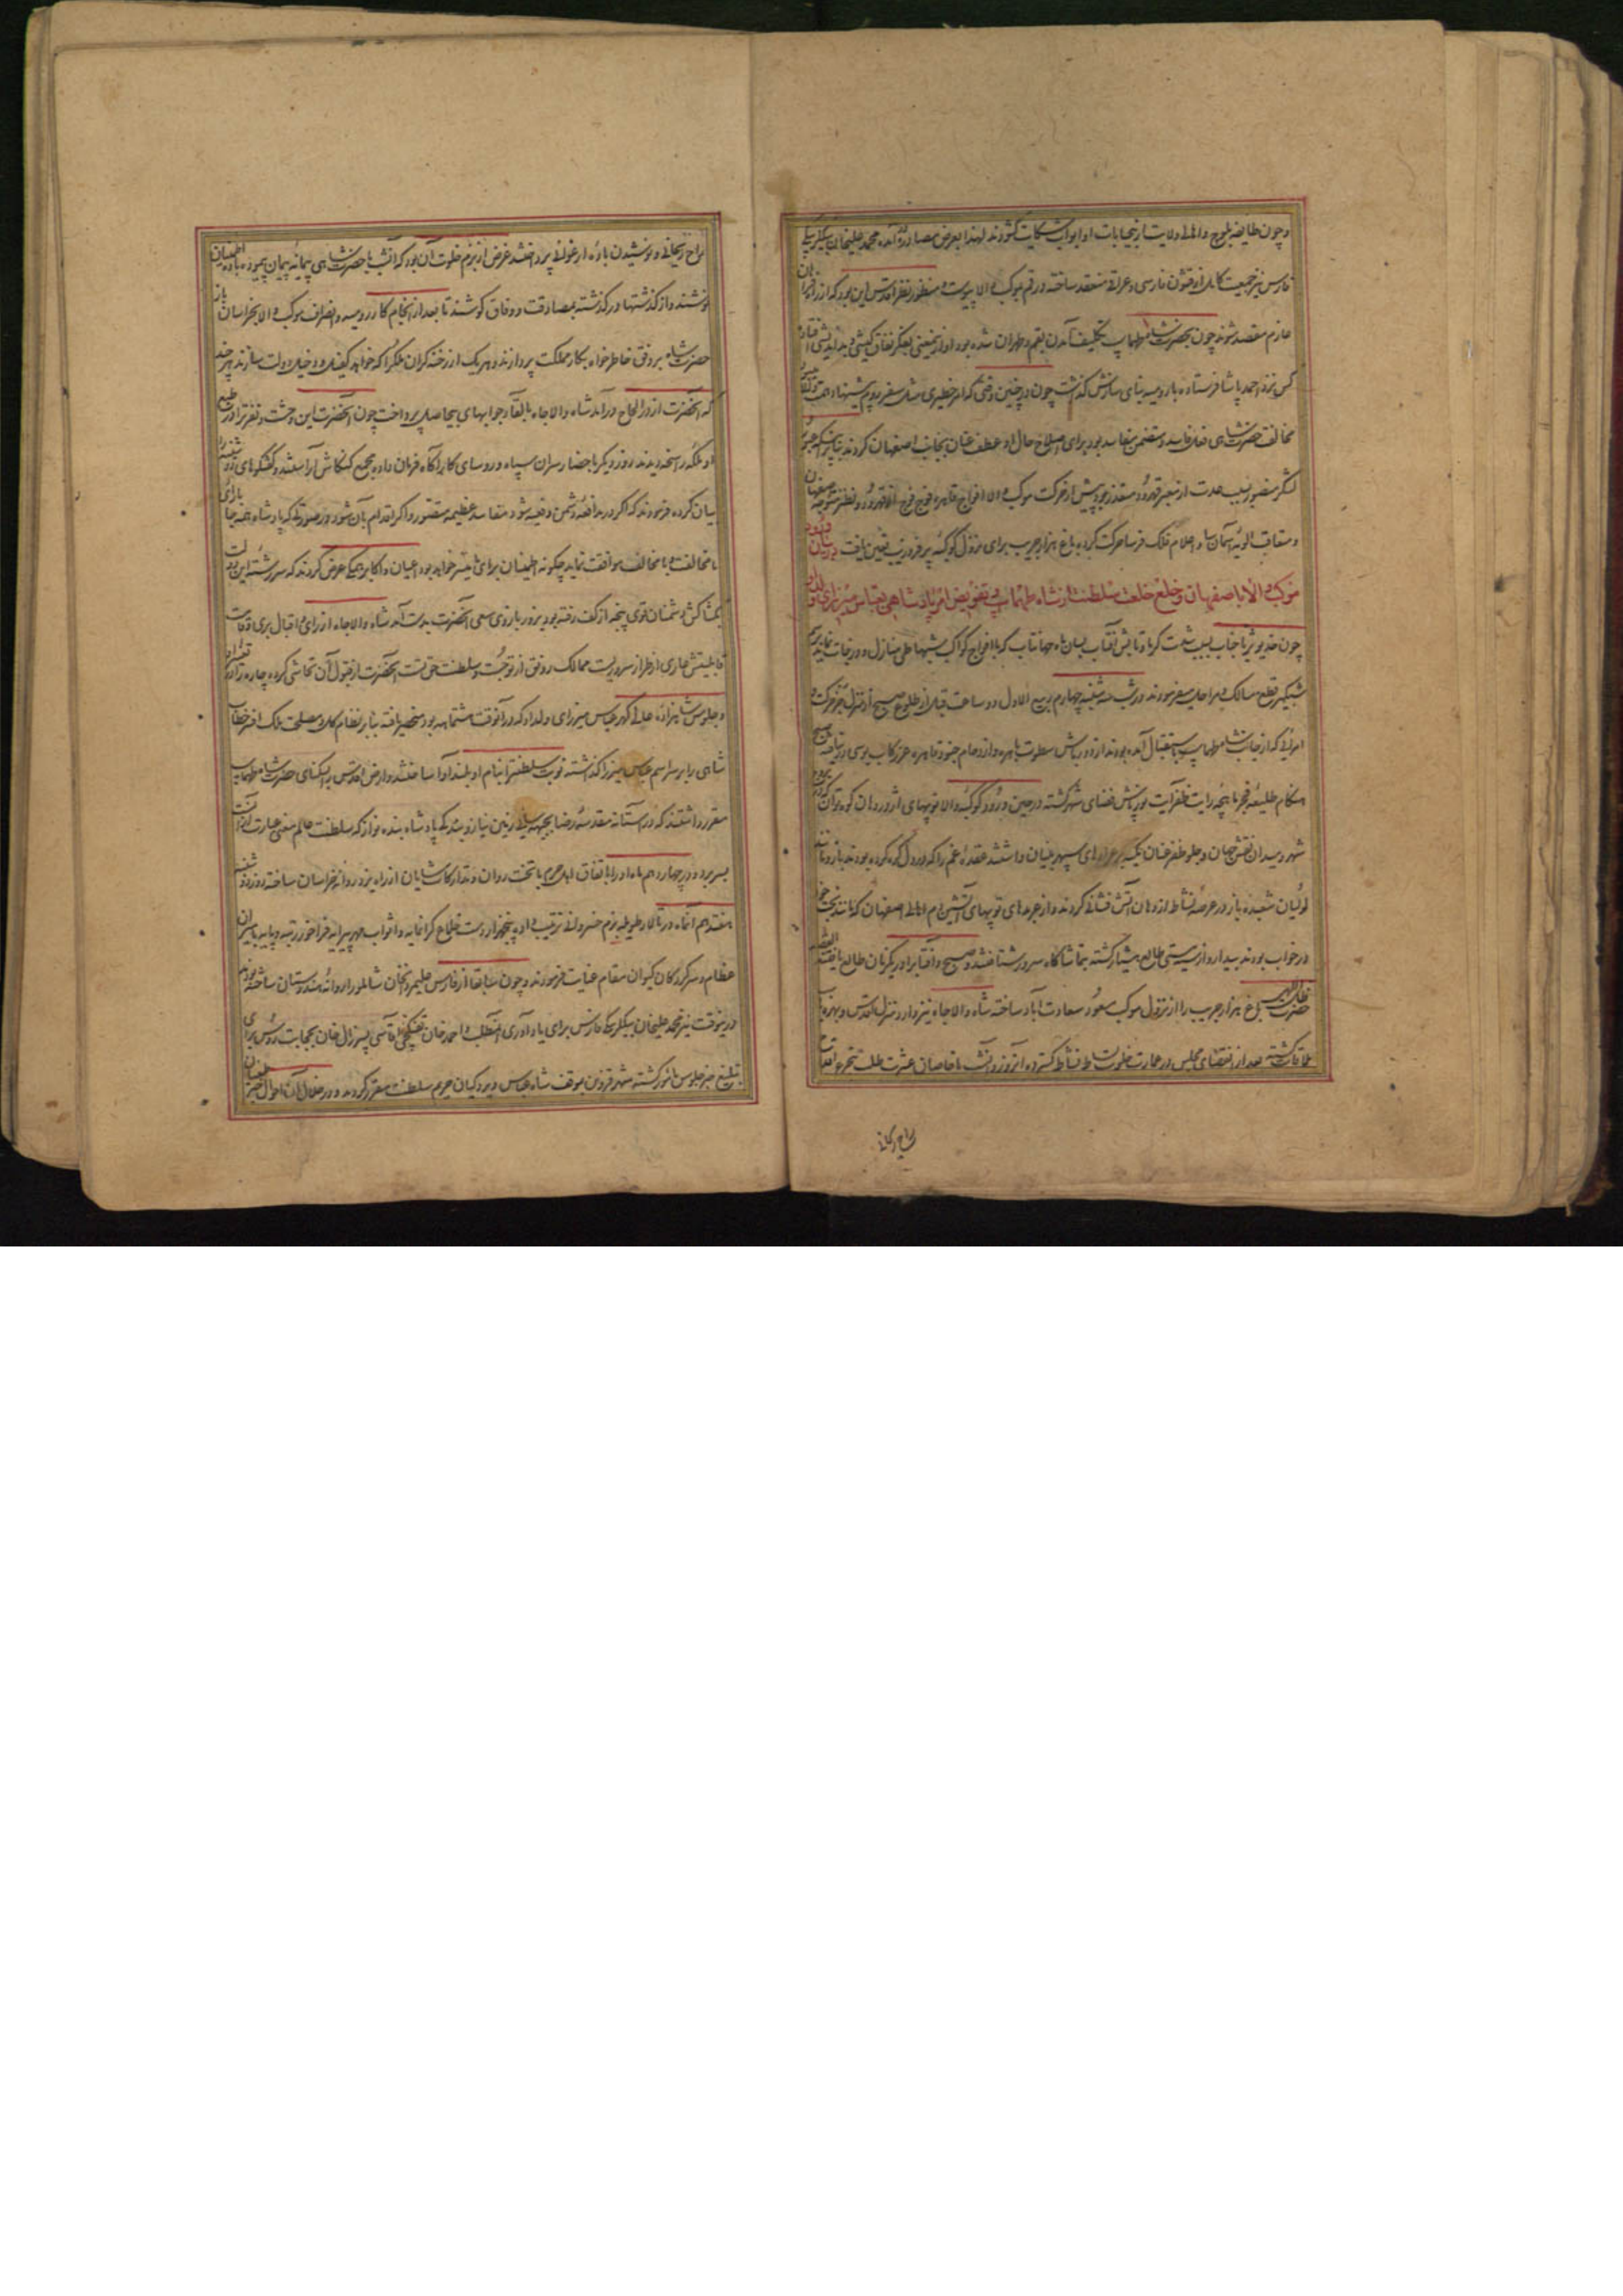 و چون طایفه بلوچ و اهالی ولایت از بیحسابات او ابواب شکایت گشودند لهذا بعرض مصادره آمده محمد علیخان بیگلربیگی
فارس نیز جمعیت کامل از قشون فارسی و عراقی منعقد ساخته در قم بموکب والا پیوست و منظور نظر اقدس این بود که از راه
عازم مقصد شوند چون بحضرت شاه طهماسب تکلیف آمدن بقم و طهران شده بود او از بمعنی بفکر نفاق کیشی و بداندیشی افتاده
کس نزد احمد پاشا فرستاده با رومیه بنای سازش گذاشت چون در چنین وقتی که امر خطیری مثل سفر روم پیشنهاد همت
مخالفت حضرت شاهی فعل فاسد و متضمن مفاسد بود برای اصلاح حال او عطف عنان بجانب اصفهان کردند
لشکر منصور بسبب حدت از معبر قهرود متعذر بود پیش از حرکت موکب والا افواج قاهره فوج فوج از قهرود و نطنز متوجه اصفهان
و متعاقب الویه آسمان سا و اعلام فلک فرسا حرکت کرده باغ هزار جریب برای نزول کوکبه پر فر و زیب تعین یافت در بیان ورود
موکب والا باصفهان و خلع خلعت سلطنت از شاه طهماسب و تفویض امر پادشاهی بعباس میرزای ولد او
چون خدیو ثریا جناب بسبب شدت گرما و تابش آفتاب بسان ماه جهانتاب که با افواج کواکب شبها طی منازل و درجات نماید
شبگیر قطع مسالک و مراحل میفرمودند در شب سه شنبه چهارم ربیع الاول دو ساعت قبل از طلوع صبح از منزل حرکت و
امرائی که از جانب شاه طهماسب باستقبال آمده بودند از دورباش سطوت باهره و ازدحام جنود قاهره عز رکاب بوسی در نیافته
هنگام طلیعه فجر ماهچه رایت ظفر آیت نور پاش فضای شهر گشته در حین ورود کوکبه والا توپهای اژدر دهان کوه توان
شهر و میدان نقش جهان و جلو ظفر عنان یکه بر عراده های سپهر بنیان داشتند عقده غم را که در دل گره کرده بودند باز
لولیان شعبده باز در عرصه نشاط از دهان آتش فشانی کردند و از عربده های توپهای آتشین دم اهالی اصفهان که مانند بخت خود
در خواب بودند بیدار و از سیه مستی طالع هشیار گشته بتماشاگاه سرور شتافتند و صبح و آفتابرا در یکزمان طالع یافتند
حضرت ظل اللهی باغ هزار جریب را از نزول موکب مسعود سعادت آباد ساخته شاه والا جاه نیز وارد منزل اقدس و بهره یاب
ملاقات گشته بعد از انقضای مجلس در عمارت خلوت بساط نشاط گسترده آنروز و آنشب با خاصان عشرت طلب
براح ریحانی
براح ریحانی و نوشیدن باده ارغوانی پرداختند غرض از بزم خلوت آن بود که آنشب با حضرت شاهی پیمانه پیمان پیموده باده اطمینان
نوشند و از گذشتها درگذشته بمصادقت و وفاق کوشند تا بعد از انجام کار رومیه و انصراف موکب والا بخراسان باز
حضرت شاه بر وفق خاطرخواه بکار مملکت پردازند و هر یک از رخنه گران ملکرا که خواهد کفیل و دخیل دولت سازند هر چند
که آنحضرت از در الحاح درآمد شاه والا جاه بالقا و جوابهای بیحاصل پرداخت چون آنحضرت این وحشت و نفرترا در طبع
او ملکه راسخه دیدند روز دیگر باحضار سران سپاه و روسای کارآگاه فرمان داده مجمع کنکاش آراستند و گفتگوهای
بیان کرده فرمودند که اگر در مدافعه دشمن وقفه شود مفاسد عظیمه متصور و اگر اقدام بآن شود در صورتیکه پادشاه همه جا با رای
ما مخالفت و با مخالف موافقت نماید چگونه اطمینان برای ما میسر خواهد بود اعیان و اکابر همگی عرض کردند که سررشته این دولت
بکشاکش دشمنان قوی پنجه از کف رفته بود بزور بازوی سعی آنحضرت بدست آمد شاه والا جاه از رای و اقبال بری و
قابلیتش عاری از طراز سروریست ممالک رونق از توجست و سلطنت حق تست آنحضرت از قبول آن تحاشی کرده چاره را در
و جلوس شاهزاده عالی گهر عباس میرزای ولد او که در آنوقت هشت ماهه بود منحصر یافته بنابر نظام کار و مصلحت ملک افسر خطاب
شاهی را بر سر اسم عباس میرزا گذاشته نوبت سلطنترا بنام او بلند آوا ساختند و ارض اقدس را بسکنای حضرت شاه طهماسب
مقرر داشتند که در آستانه مقدسه رضا بجبهه سای زمین نیاز و بندگی پادشاه بنده نواز که سلطنت عالم معنی عبارت از آنست
بسر برد و در چهاردهم ماه او را باتفاق اهل حرم با تخت روان و تدارکات شایان از راه یزد روانه خراسان ساخته روز دوشنبه
هفتدهم آنماه در تالار طویله بزم خسروانی ترتیب داده پنجهزار دست خلاع گرانمایه و اثواب مهر پیرایه فراخور رتبه و پایه بامیران
عظام و سرکردگان کیوان مقام عنایت فرمودند و چون سابقا از فارس علیمردانخان شاملو را روانه هندوستان ساخته بودند
درینوقت نیز محمد علیخان بیگلربیگی فارس برای یادآوری آنمطلب و احمد خان تفنگچی آقاسی پسر زال خان بجانب روس برای
تبلیغ خبر جلوس مامور گشته شهر قزوین بموقف شاه عباس و پردگیان حریم سلطنت مقرر کردند و در خلال آن احوال